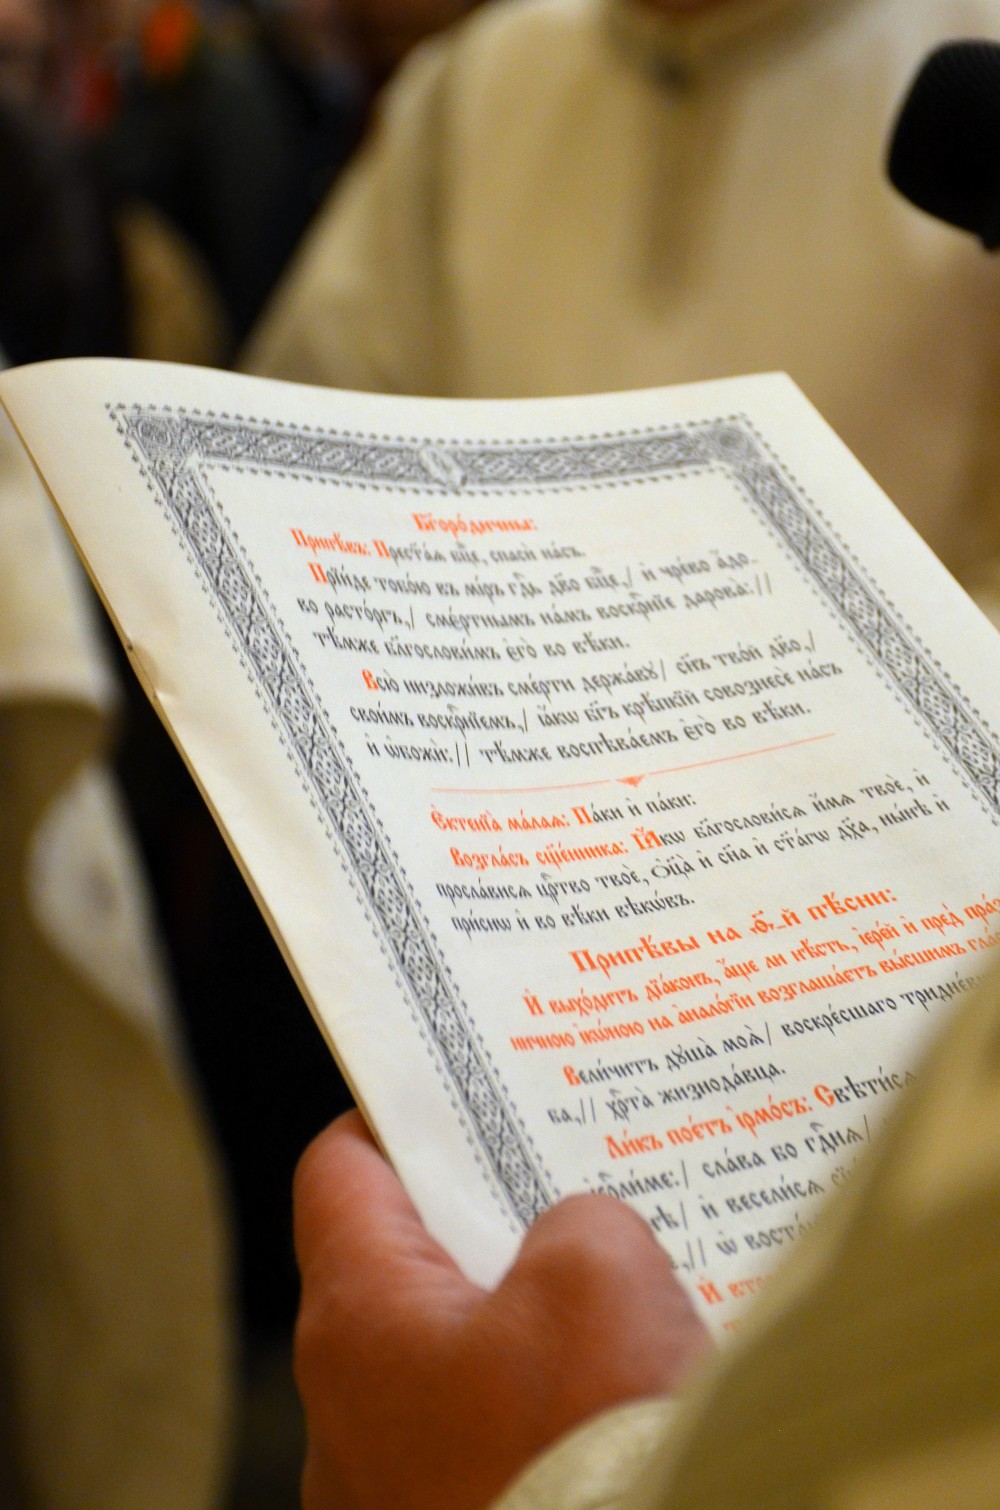 Бг҃оро́дичны:
Припѣ́въ: Прест҃а́ѧ бц҃е, спасѝ на́съ.
Прїи́де тобо́ю въ мі́ръ гдⷭ҇ь дв҃о бц҃е,/ и҆ чре́во а҆́до-
во расто́ргъ,/ сме́ртнымъ на́мъ воскрⷭ҇нїе дарова̀://
тѣ́мже бл҃гослови́мъ є҆го̀ во вѣ́ки.
Всю̀ низложи́въ сме́рти держа́вꙋ/ сн҃ъ тво́й дв҃о,/
свои́мъ воскрⷭ҇нїемъ,/ ꙗ҆́кѡ бг҃ъ крѣ́пкїй совознесѐ на́съ
и҆ ѡ҆божѝ:// тѣ́мже воспѣва́емъ є҆го̀ во вѣ́ки.
Є҆ктенїа̀ ма́лаѧ: Па́ки и҆ па́ки:
Возгла́съ сщ҃е́нника: Ꙗ҆́кѡ бл҃гослови́сѧ и҆́мѧ твоѐ, и҆
просла́висѧ црⷭ҇тво твоѐ, Ѻ҆ц҃а̀ и҆ сн҃а и҆ ст҃а́гѡ дх҃а, ны́нѣ и҆
при́снѡ и҆ во вѣ́ки вѣкѡ́въ.
Припѣ́вы на ѳ҃-й пѣ́сни:
И҆ выхо́дитъ дїа́конъ, а҆́ще ли нѣ́сть, і҆ере́й и҆ пред̾
ничною і҆кѡ́ною на а҆нало́гїи возглаша́етъ вы́сшимъ
Вели́читъ дꙋша̀ моѧ̀/ воскре́сшаго
ва,// хрⷭ҇та̀ жизнода́вца.
Ли́къ пое́тъ і҆рмо́съ: Свѣти́сѧ
сла́ва бо гдⷭ҇нѧ/
и҆ весели́сѧ
И҆